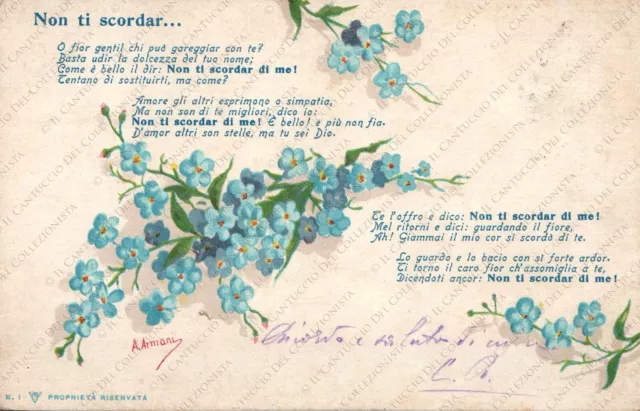 Non ti scordar...
O fior gentil chi può gareggiar con te?
Basta udir la dolcezza del tuo nome;
Come è bello il dir: Non ti scordar di me!
Tentano di sostituirti, ma come?
Amore gli altri esprimono o simpatia,
Ma non son di te migliori, dico io:
Non ti scordar di me! È bello! e più non fia.
D'amor altri son stelle, ma tu sei Dio.
Te l'offro e dico: Non ti scordar di me!
Mel ritorni e dici: guardando il fiore,
Ah! Giammai il mio cor si scordò di te.
Lo guardo e lo bacio con sì forte ardor.
Ti torno il caro fior ch'assomiglia a te,
Dicendoti ancor: Non ti scordar di me!
A. Armani
Ricordo e saluto di
C. R.
N. 1 PROPRIETÀ RISERVATA
© IL CANTUCCIO DEL COLLEZIONISTA